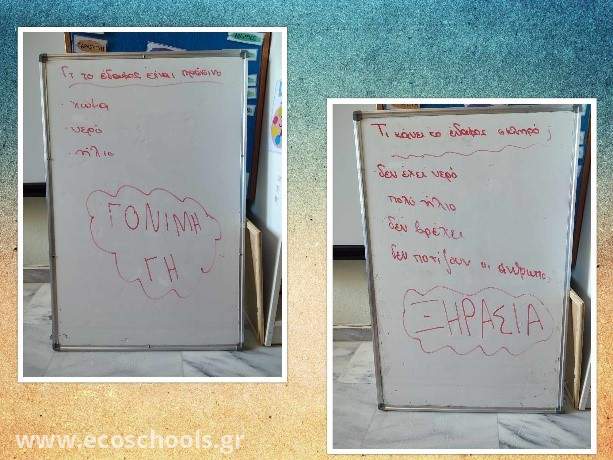 Γτ το έδαφος είναι πράσινο
· χώμα
· νερό
· ήλιο
ΓΟΝΙΜΗ
ΓΗ
Τι κάνει το έδαφος σκληρό;
δεν έχει νερό
πολύ ήλιο
δεν βρέχει
δεν ποτίζουν οι άνθρωποι
ΞΗΡΑΣΙΑ
www.ecoschools.gr